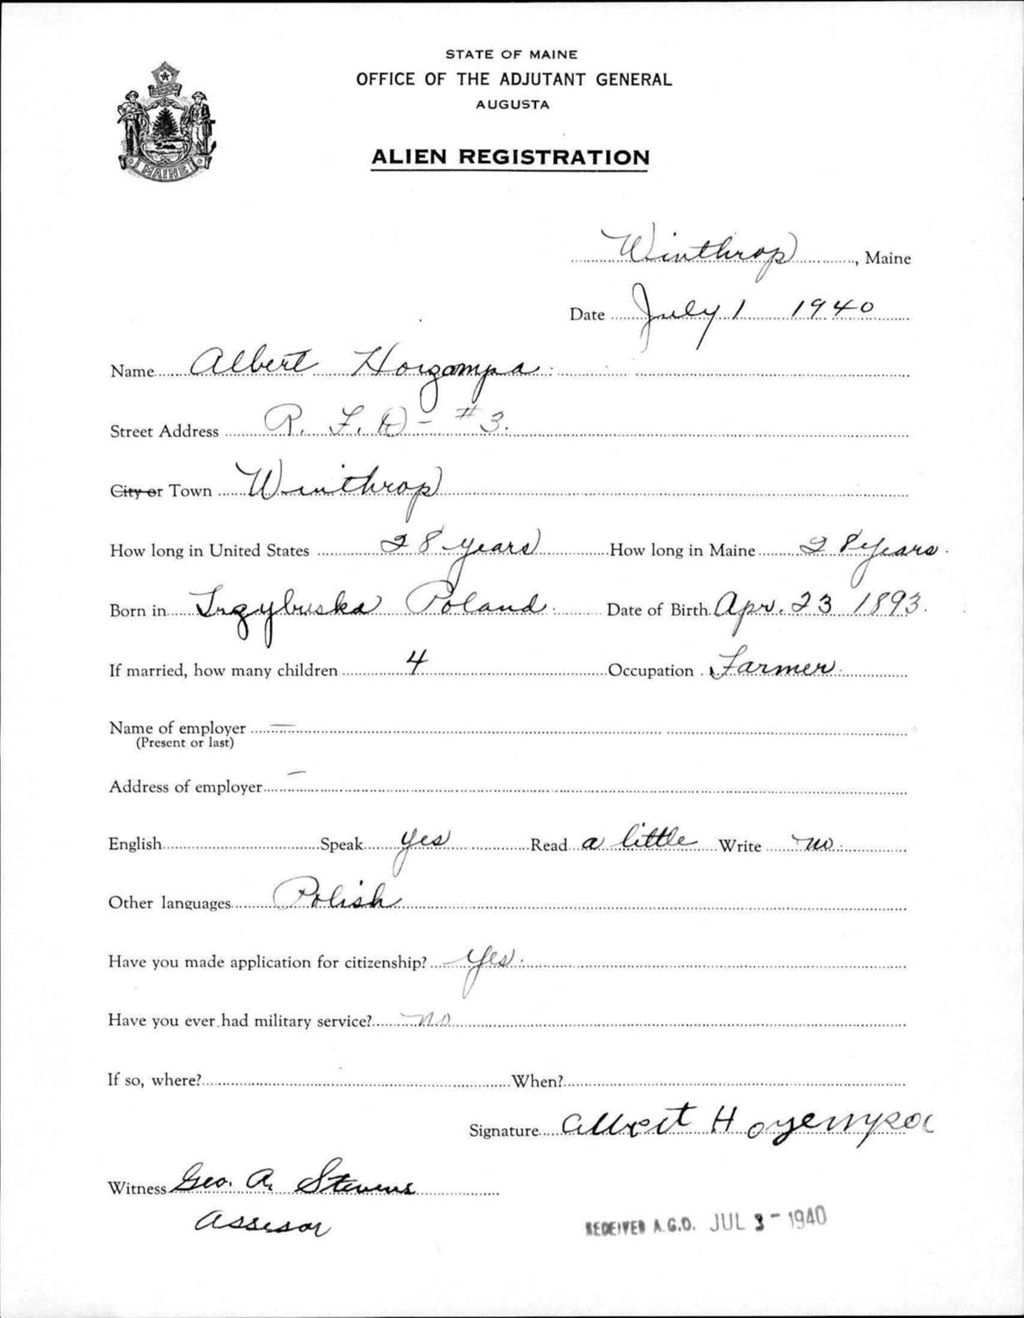 STATE OF MAINE
OFFICE OF THE ADJUTANT GENERAL
AUGUSTA
MAINE
ALIEN REGISTRATION
Winthrop, Maine
Date July 1 1940
Name Albert
Street Address R. F. D - #3.
City or Town Winthrop
How long in United States 28 years How long in Maine 28 years.
Born in Poland. Date of Birth Apr. 23 1893.
If married, how many children 4 Occupation Farmer.
Name of employer —
(Present or last)
Address of employer —
English Speak Yes Read a little Write no.
Other languages Polish
Have you made application for citizenship? Yes.
Have you ever had military service? no
If so, where? When?
Signature Albert
Witness Geo. A. Stevens
Assesor
RECEIVED A.G.O. JUL 3 - 1940